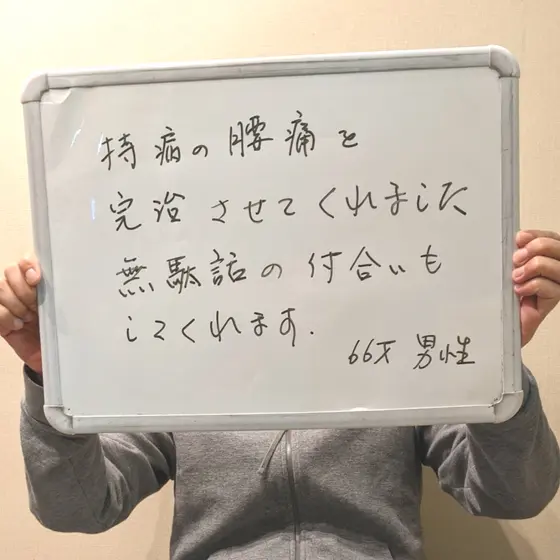 持病の腰痛を
完治させてくれました
無駄話の付合いも
してくれます.
66才 男性